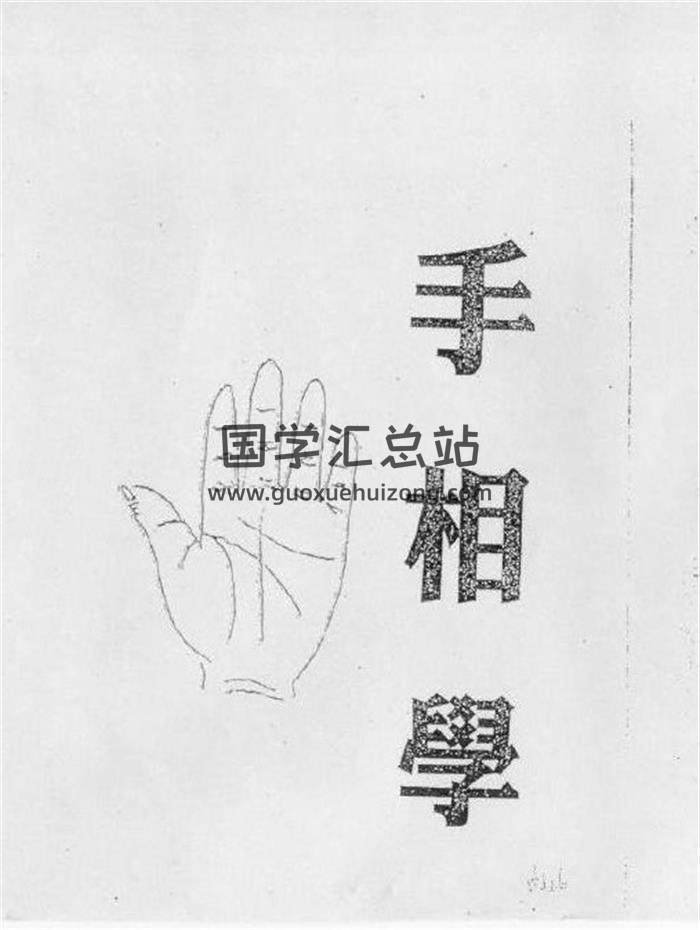 手相學
国学汇总站
www.guoxuehuizong.com